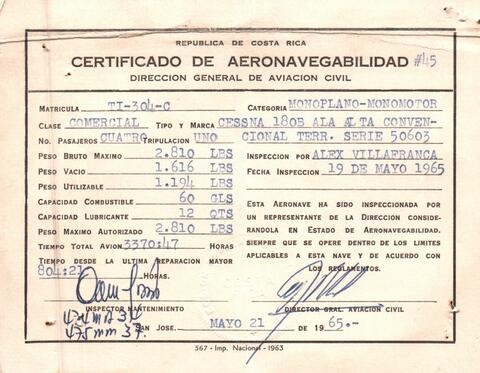 REPUBLICA DE COSTA RICA
CERTIFICADO DE AERONAVEGABILIDAD #45
DIRECCION GENERAL DE AVIACION CIVIL
MATRICULA TI-304-C CATEGORIA MONOPLANO-MONOMOTOR
CLASE COMERCIAL TIPO Y MARCA CESSNA 180B ALA ALTA CONVEN-
No. PASAJEROS CUATRO TRIPULACION UNO CIONAL TERR. SERIE 50603
PESO BRUTO MAXIMO 2.810 LBS
PESO VACIO 1.616 LBS
PESO UTILIZABLE 1.194 LBS
CAPACIDAD COMBUSTIBLE 60 GLS
CAPACIDAD LUBRICANTE 12 QTS
PESO MAXIMO AUTORIZADO 2.810 LBS
TIEMPO TOTAL AVION 3370:47 HORAS
TIEMPO DESDE LA ULTIMA REPARACION MAYOR
804:21 HORAS.
INSPECCION POR ALEX VILLAFRANCA
FECHA INSPECCION 19 DE MAYO 1965
ESTA AERONAVE HA SIDO INSPECCIONADA
POR UN REPRESENTANTE DE LA DIRECCION CONSIDE-
RANDOLA EN ESTADO DE AERONAVEGABILIDAD.
SIEMPRE QUE SE OPERE DENTRO DE LOS LIMITES
APLICABLES A ESTA NAVE Y DE ACUERDO CON
LOS REGLAMENTOS.
INSPECTOR MANTENIMIENTO
DIRECTOR GRAL. AVIACION CIVIL
SAN JOSE, MAYO 21 DE 1965.-
567 - Imp. Nacional - 1963